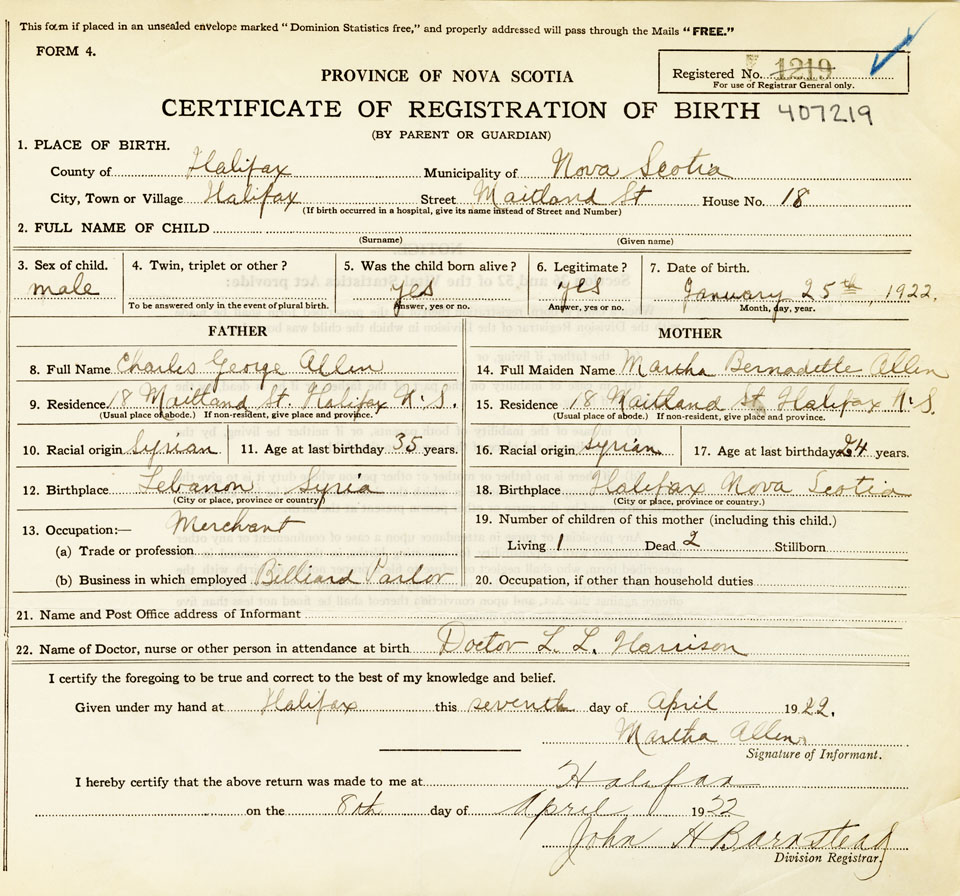 This form if placed in an unsealed envelope marked "Dominion Statistics free," and properly addressed will pass through the Mails "FREE."
FORM 4.
PROVINCE OF NOVA SCOTIA
Registered No. 1219
For use of Registrar General only.
CERTIFICATE OF REGISTRATION OF BIRTH 407219
(BY PARENT OR GUARDIAN)
1. PLACE OF BIRTH.
County of Halifax Municipality of Nova Scotia
City, Town or Village Halifax Street Maitland St House No. 18
(If birth occurred in a hospital, give its name instead of Street and Number)
2. FULL NAME OF CHILD
(Surname) (Given name)
3. Sex of child. 4. Twin, triplet or other? 5. Was the child born alive? 6. Legitimate? 7. Date of birth.
male yes yes January 25th, 1922.
To be answered only in the event of plural birth. Answer, yes or no. Answer, yes or no. Month, day, year.
FATHER MOTHER
8. Full Name Charles George Allen 14. Full Maiden Name Martha Bernadette Allen
9. Residence 18 Maitland St. Halifax N.S. 15. Residence 18 Maitland St Halifax N.S.
(Usual place of abode.) If non-resident, give place and province. (Usual place of abode.) If non-resident, give place and province.
10. Racial origin Syrian 11. Age at last birthday 35 years. 16. Racial origin Syrian 17. Age at last birthday 24 years.
12. Birthplace Lebanon Syria 18. Birthplace Halifax Nova Scotia
(City or place, province or country) (City or place, province or country.)
13. Occupation:— Merchant 19. Number of children of this mother (including this child.)
(a) Trade or profession Living 1 Dead 2 Stillborn
(b) Business in which employed Billiard Parlor 20. Occupation, if other than household duties
21. Name and Post Office address of Informant
22. Name of Doctor, nurse or other person in attendance at birth Doctor L. L. Harrison
I certify the foregoing to be true and correct to the best of my knowledge and belief.
Given under my hand at Halifax this seventh day of April 1922.
Martha Allen
Signature of Informant.
I hereby certify that the above return was made to me at Halifax
on the 8th day of April 1922
John H Barnstead
Division Registrar.